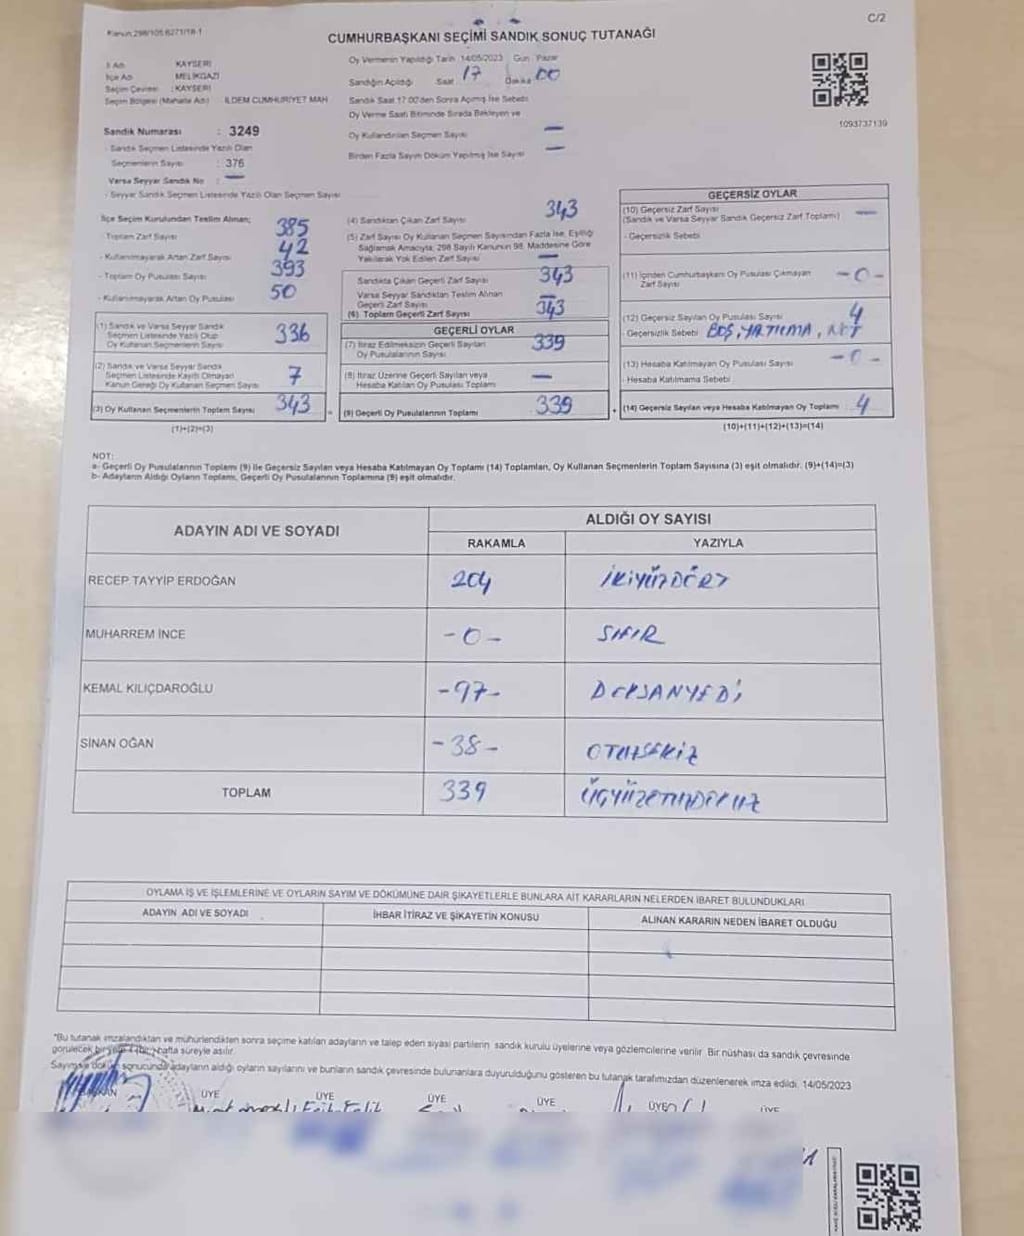 Kanun 298/105 6271/18-1
C/2
CUMHURBAŞKANI SEÇİMİ SANDIK SONUÇ TUTANAĞI
İl Adı KAYSERİ
İlçe Adı MELİKGAZİ
Seçim Çevresi : KAYSERİ
Seçim Bölgesi (Mahalle Adı) : İLDEM CUMHURİYET MAH
Sandık Numarası : 3249
- Sandık Seçmen Listesinde Yazılı Olan
Seçmenlerin Sayısı : 376
Varsa Seyyar Sandık No : —
- Seyyar Sandık Seçmen Listesinde Yazılı Olan Seçmen Sayısı
Oy Vermenin Yapıldığı Tarih 14/05/2023 Gün Pazar
Sandığın Açıldığı Saat 17 Dakika 00
Sandık Saat 17.00'den Sonra Açılmış İse Sebebi
Oy Verme Saati Bitiminde Sırada Bekleyen ve
Oy Kullandırılan Seçmen Sayısı —
Birden Fazla Sayım Döküm Yapılmış İse Sayısı —
1093737139
İlçe Seçim Kurulundan Teslim Alınan;
- Toplam Zarf Sayısı 385
- Kullanılmayarak Artan Zarf Sayısı 42
- Toplam Oy Pusulası Sayısı 393
- Kullanılmayarak Artan Oy Pusulası 50
(1) Sandık ve Varsa Seyyar Sandık
Seçmen Listesinde Yazılı Olup
Oy Kullanan Seçmenlerin Sayısı 336
(2) Sandık ve Varsa Seyyar Sandık
Seçmen Listesinde Kayıtlı Olmayan
Kanun Gereği Oy Kullanan Seçmen Sayısı 7
(3) Oy Kullanan Seçmenlerin Toplam Sayısı 343
(1)+(2)=(3)
(4) Sandıktan Çıkan Zarf Sayısı 343
(5) Zarf Sayısı Oy Kullanan Seçmen Sayısından Fazla İse, Eşitliği
Sağlamak Amacıyla; 298 Sayılı Kanunun 98. Maddesine Göre
Yakılarak Yok Edilen Zarf Sayısı —
Sandıkta Çıkan Geçerli Zarf Sayısı 343
Varsa Seyyar Sandıktan Teslim Alınan
Geçerli Zarf Sayısı —
(6) Toplam Geçerli Zarf Sayısı 343
GEÇERLİ OYLAR
(7) İtiraz Edilmeksizin Geçerli Sayılan
Oy Pusulalarının Sayısı 339
(8) İtiraz Üzerine Geçerli Sayılan veya
Hesaba Katılan Oy Pusulası Toplamı —
= (9) Geçerli Oy Pusulalarının Toplamı 339
GEÇERSİZ OYLAR
(10) Geçersiz Zarf Sayısı
(Sandık ve Varsa Seyyar Sandık Geçersiz Zarf Toplamı) —
- Geçersizlik Sebebi
(11) İçinden Cumhurbaşkanı Oy Pusulası Çıkmayan
Zarf Sayısı -0-
(12) Geçersiz Sayılan Oy Pusulası Sayısı 4
- Geçersizlik Sebebi BOŞ, YATIRMA,
(13) Hesaba Katılmayan Oy Pusulası Sayısı -0-
- Hesaba Katılmama Sebebi
+ (14) Geçersiz Sayılan veya Hesaba Katılmayan Oy Toplamı 4
(10)+(11)+(12)+(13)=(14)
NOT:
a- Geçerli Oy Pusulalarının Toplamı (9) ile Geçersiz Sayılan veya Hesaba Katılmayan Oy Toplamı (14) Toplamları, Oy Kullanan Seçmenlerin Toplam Sayısına (3) eşit olmalıdır. (9)+(14)=(3)
b- Adayların Aldığı Oyların Toplamı, Geçerli Oy Pusulalarının Toplamına (9) eşit olmalıdır.
ADAYIN ADI VE SOYADI ALDIĞI OY SAYISI
RAKAMLA YAZIYLA
RECEP TAYYİP ERDOĞAN 204 İKİYÜZDÖRT
MUHARREM İNCE -0- SIFIR
KEMAL KILIÇDAROĞLU -97- DOKSANYEDİ
SİNAN OĞAN -38- OTUZSEKİZ
TOPLAM 339 ÜÇYÜZOTUZDOKUZ
OYLAMA İŞ VE İŞLEMLERİNE VE OYLARIN SAYIM VE DÖKÜMÜNE DAİR ŞİKAYETLERLE BUNLARA AİT KARARLARIN NELERDEN İBARET BULUNDUKLARI
ADAYIN ADI VE SOYADI İHBAR İTİRAZ VE ŞİKAYETİN KONUSU ALINAN KARARIN NEDEN İBARET OLDUĞU
"Bu tutanak imzalandıktan ve mühürlendikten sonra seçime katılan adayların ve talep eden siyasi partilerin sandık kurulu üyelerine veya gözlemcilerine verilir. Bir nüshası da sandık çevresinde
görülecek bir yere 1 (bir) hafta süreyle asılır.
Sayım ve döküm sonucunda adayların aldığı oyların sayılarını ve bunların sandık çevresinde bulunanlara duyurulduğunu gösteren bu tutanak tarafımızdan düzenlenerek imza edildi. 14/05/2023
BAŞKAN ÜYE ÜYE ÜYE ÜYE ÜYE ÜYE